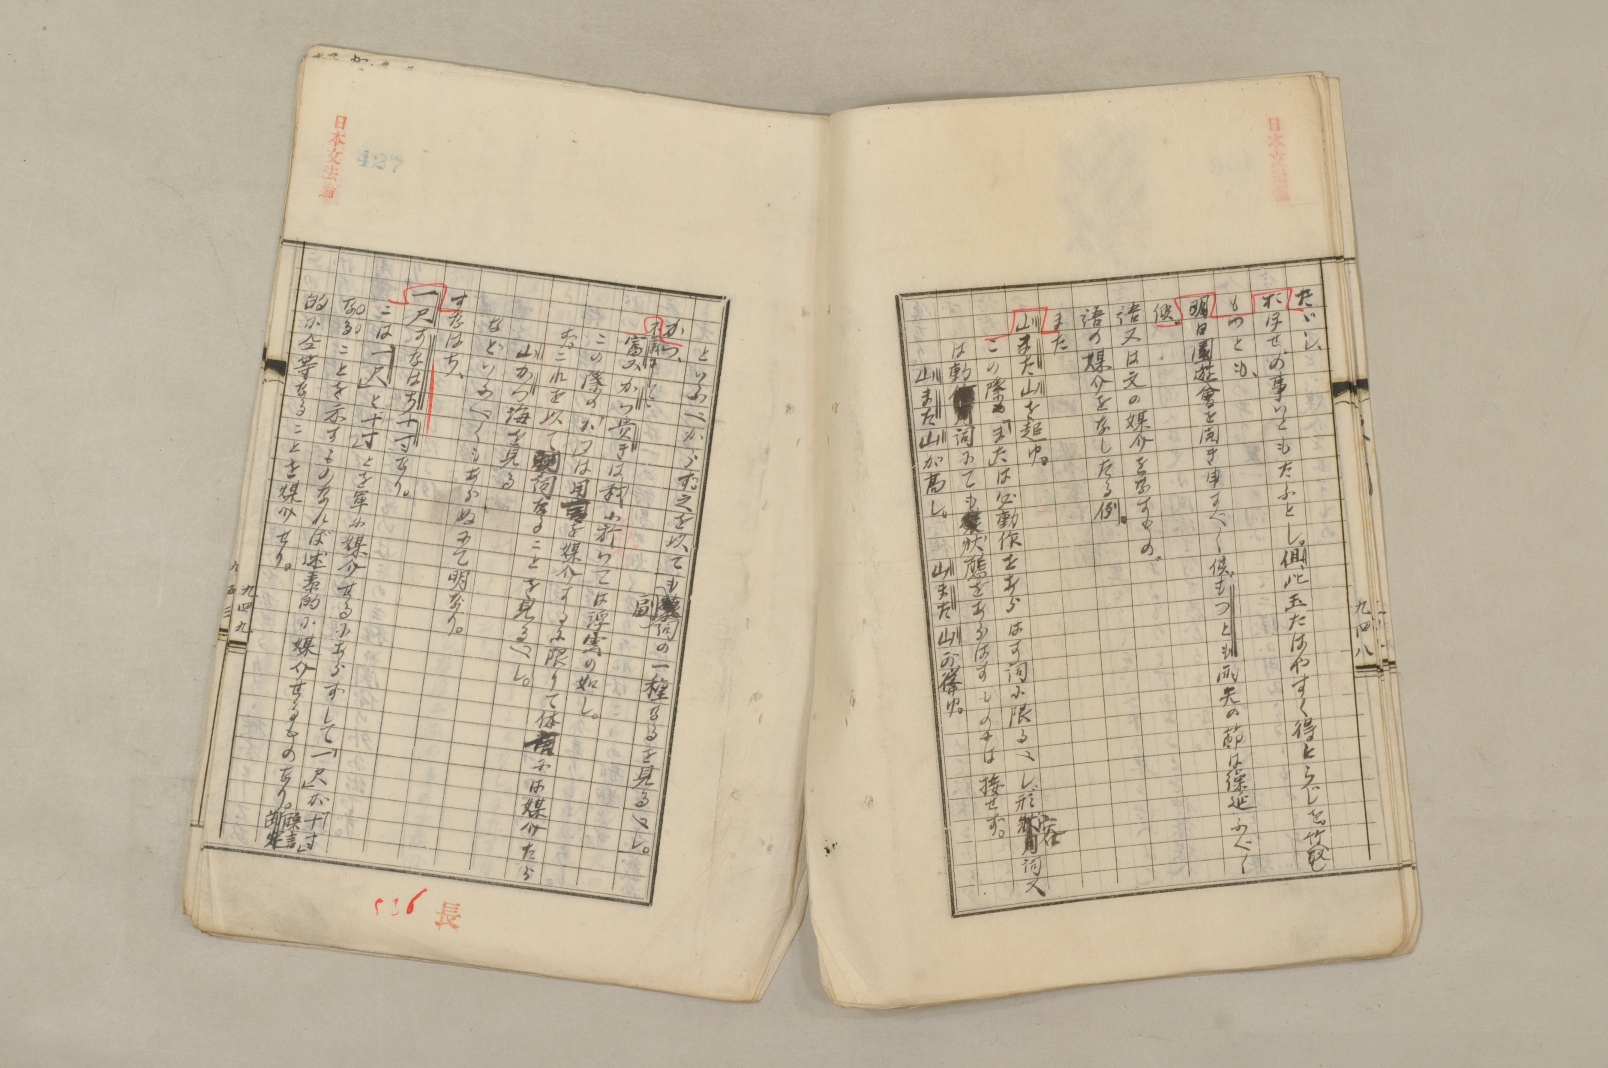 日本文法論
たゞし、
おほせの事いともたふとし。但、此玉たはやすく得とらじを 竹取
もつとも、
明日園遊會を開き申すべく候。もつとも雨天の節は繰延ふべく
候。
語又は文の媒介をなすもの。
語の媒介をなしたる例。
また
山また山を起ゆ。
この際のまたは必動作をあらはす詞に限るべし形容詞又
は動詞にても状態をあらはすものには接せず。
山また山が高し。 山また山が聳ゆ。
九四八
日本文法論
427
といふべからず之を以ても副詞の一種なるを見るべし。
かつ、
不義にして
富みかつ貴きは我に於ては浮雲の如し。
この際のかつは用言を媒介するに限りて体言には媒介たら
ずこれを以て副詞なることを見るべし。
山かつ海を見る
などいふべくもあらぬにて明なり。
すなはち、
一尺すなはち十寸なり。
こは「一尺」と「十寸」とを単に媒介せるにあらずして「一尺が十寸」
なることを示すものなれば述素的に媒介せるものなり。
的に全等なることを媒介せり。
九四九
九五三
536
長